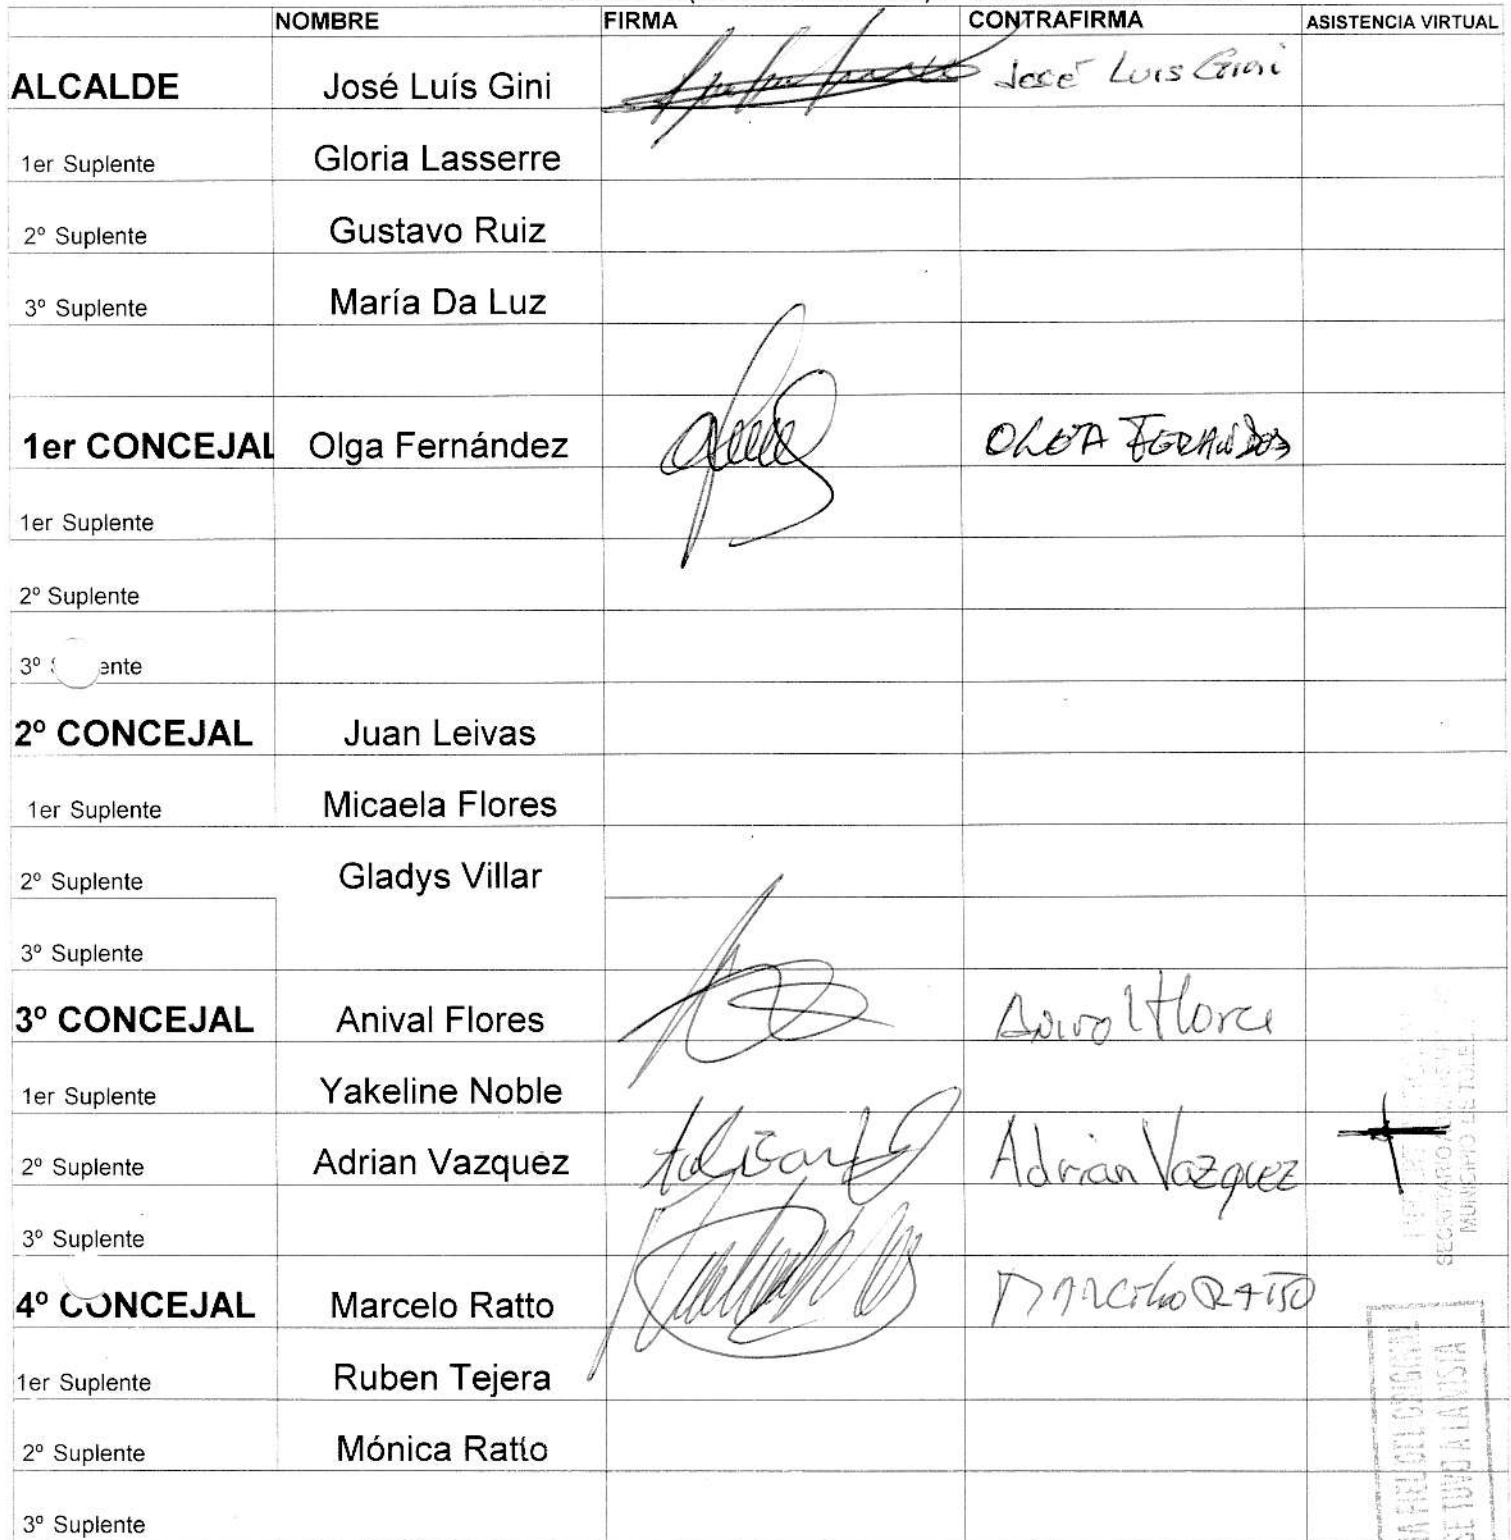 NOMBRE FIRMA CONTRAFIRMA ASISTENCIA VIRTUAL
ALCALDE José Luís Gini José Luis Gini
1er Suplente Gloria Lasserre
2º Suplente Gustavo Ruiz
3º Suplente María Da Luz
1er CONCEJAL Olga Fernández OLGA
1er Suplente
2º Suplente
3º
2º CONCEJAL Juan Leivas
1er Suplente Micaela Flores
2º Suplente Gladys Villar
3º Suplente
3º CONCEJAL Anival Flores
1er Suplente Yakeline Noble
2º Suplente Adrian Vazquez Adrian Vazquez
3º Suplente
4º CONCEJAL Marcelo Ratto MARCELO RATTO
1er Suplente Ruben Tejera
2º Suplente Mónica Ratto
3º Suplente
SECRETARIO
MUNICIPIO DE
FIEL DEL ORIGINAL
SE TUVO A LA VISTA